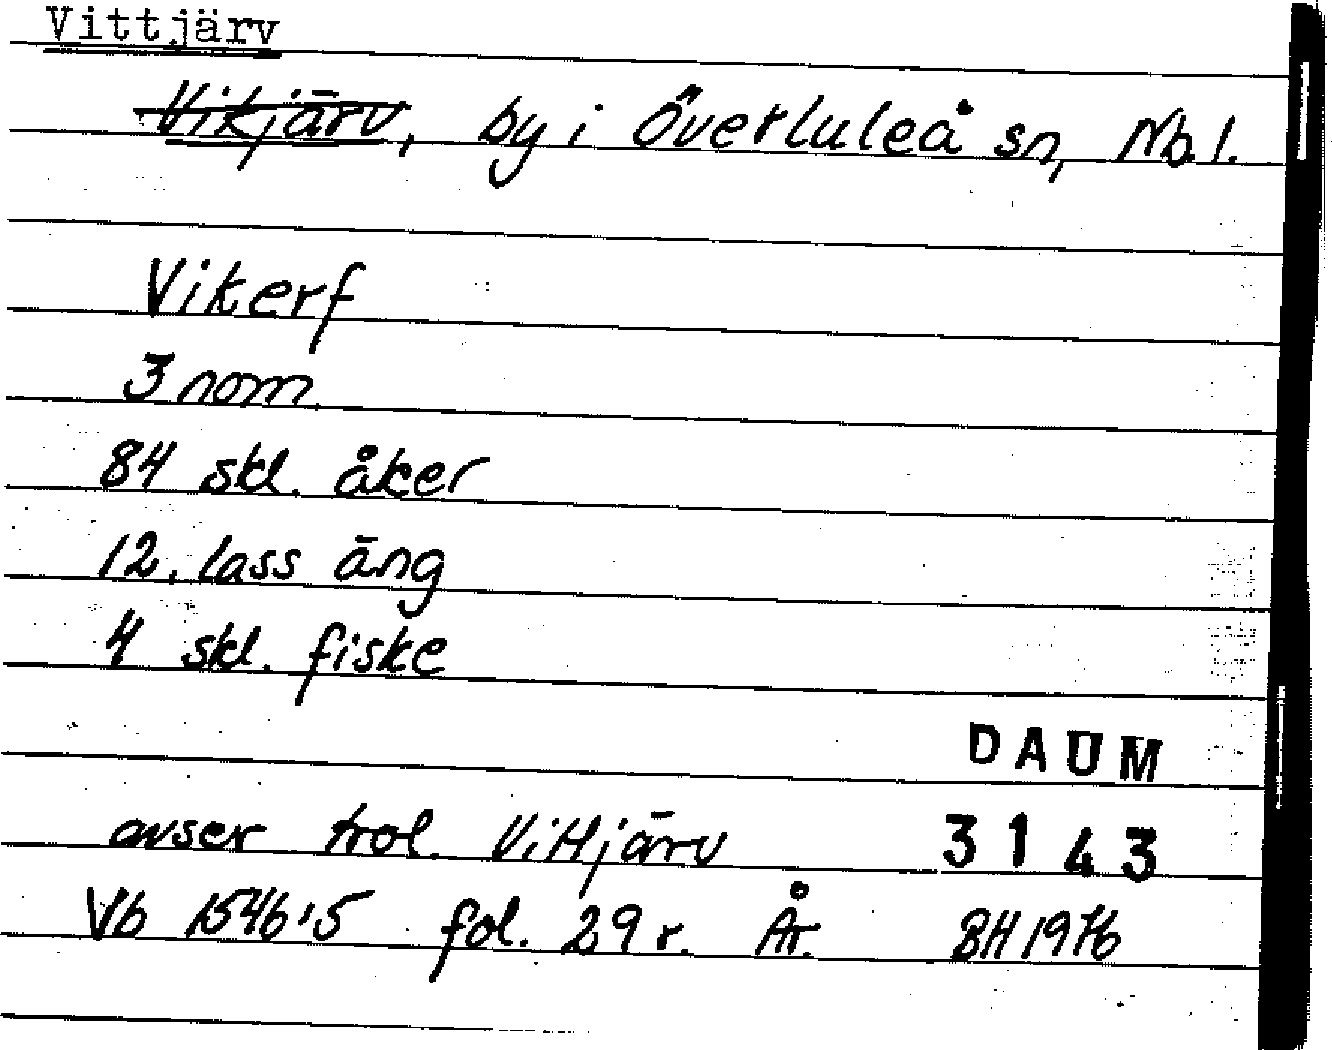 Vittjärv
Vikjärv, by i Överluleå sn, Nb l.
Vikerf
3 nom
84 skl. åker
12. lass äng
4 skl. fiske
DAUM
avser trol. Vittjärv 3143
Vb 1546:5 fol. 29 r. År. BH 1976